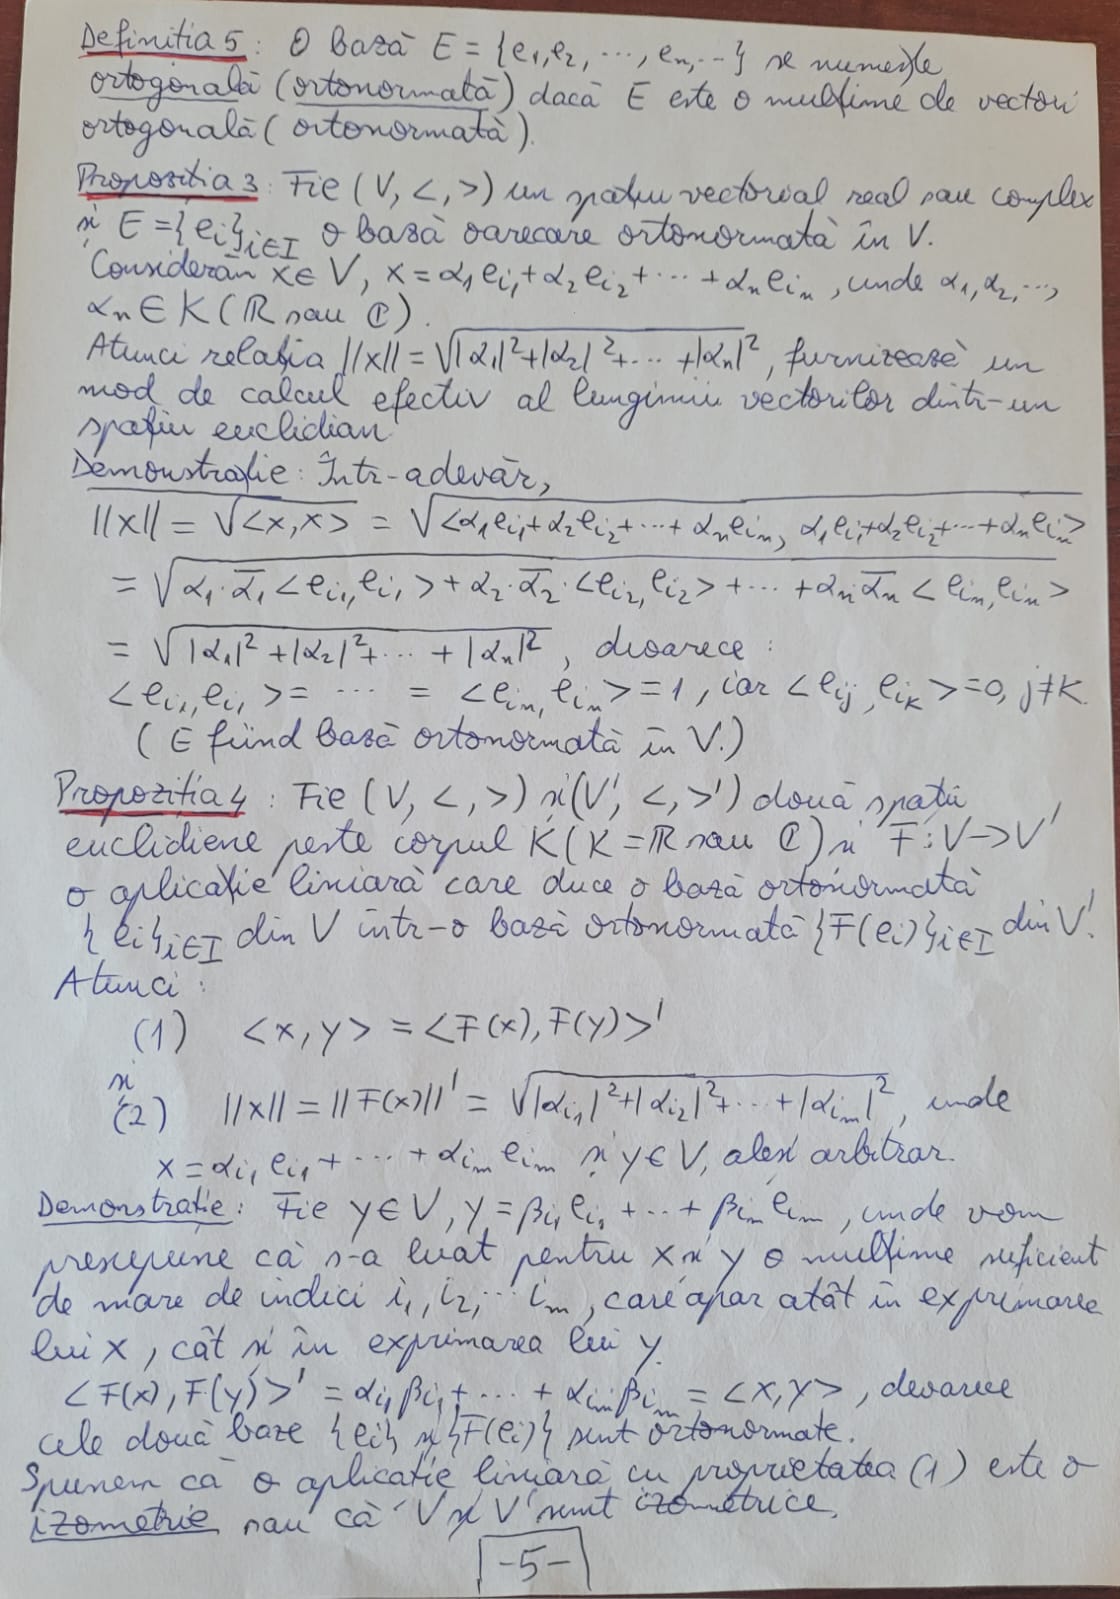 Definiția 5: O bază E = {e₁,e₂, ..., eₙ,..} se numește
ortogonală (ortonormată) dacă E este o mulțime de vectori
ortogonală (ortonormată).
Propoziția 3: Fie (V, <,>) un spațiu vectorial real sau complex
și E = {eᵢ}ᵢ∈I o bază oarecare ortonormată în V.
Considerăm x∈V, x = α₁eᵢ₁ + α₂eᵢ₂ + ... + αₙeᵢₙ, unde α₁, α₂, ...,
αₙ ∈ K (ℝ sau ℂ).
Atunci relația ||x|| = √(|α₁|² + |α₂|² + ... + |αₙ|²), furnizează un
mod de calcul efectiv al lungimii vectorilor dintr-un
spațiu euclidian
Demonstrație: Într-adevăr,
||x|| = √<x,x> = √<α₁eᵢ₁ + α₂eᵢ₂ + ... + αₙeᵢₙ, α₁eᵢ₁ + α₂eᵢ₂ + ... + αₙeᵢₙ>
= √(α₁·α̅₁<eᵢ₁,eᵢ₁> + α₂·α̅₂·<eᵢ₂,eᵢ₂> + ... + αₙ·α̅ₙ<eᵢₙ,eᵢₙ>)
= √(|α₁|² + |α₂|² + ... + |αₙ|²), deoarece:
<eᵢ₁,eᵢ₁> = ... = <eᵢₙ,eᵢₙ> = 1, iar <eᵢⱼ,eᵢₖ> = 0, j≠k.
(E fiind bază ortonormată în V.)
Propoziția 4: Fie (V, <,>) și (V', <,>') două spații
euclidiene peste corpul K (K = ℝ sau ℂ) și F: V→V'
o aplicație liniară care duce o bază ortonormată
{eᵢ}ᵢ∈I din V într-o bază ortonormată {F(eᵢ)}ᵢ∈I din V'.
Atunci:
(1) <x,y> = <F(x),F(y)>'
și
(2) ||x|| = ||F(x)||' = √(|αᵢ₁|² + |αᵢ₂|² + ... + |αᵢₘ|²), unde
x = αᵢ₁eᵢ₁ + ... + αᵢₘeᵢₘ și y∈V, ales arbitrar.
Demonstrație: Fie y∈V, y = βᵢ₁eᵢ₁ + ... + βᵢₘeᵢₘ, unde vom
presupune că s-a luat pentru x și y o mulțime suficient
de mare de indici i₁, i₂, ... iₘ, care apar atât în exprimarea
lui x, cât și în exprimarea lui y.
<F(x),F(y)>' = αᵢ₁βᵢ₁ + ... + αᵢₘβᵢₘ = <x,y>, deoarece
cele două baze {eᵢ} și {F(eᵢ)} sunt ortonormate.
Spunem că o aplicație liniară cu proprietatea (1) este o
izometrie sau că V și V' sunt izometrice.
-5-